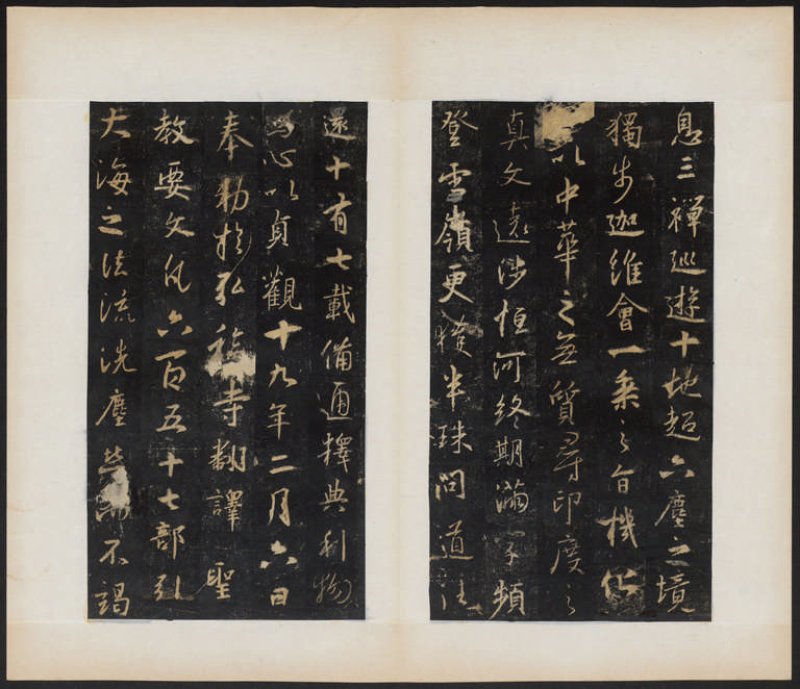 息三禪巡遊十地超六塵之境
獨步迦維會一乘之旨機化
以中華之無質尋印度之
真文遠涉恒河終期滿字頻
登雪嶺更獲半珠問道往
還十有七載備通釋典利物
為心以貞觀十九年二月六日
奉勅於弘福寺翻譯聖
教要文凡六百五十七部引
大海之法流洗塵勞而不竭